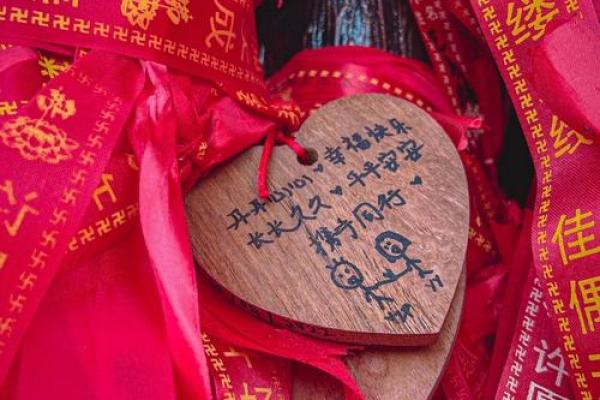 开开心心♥幸福快乐
长长久久♥平平安安
携手同行♥
成
缕
佳偶
许愿